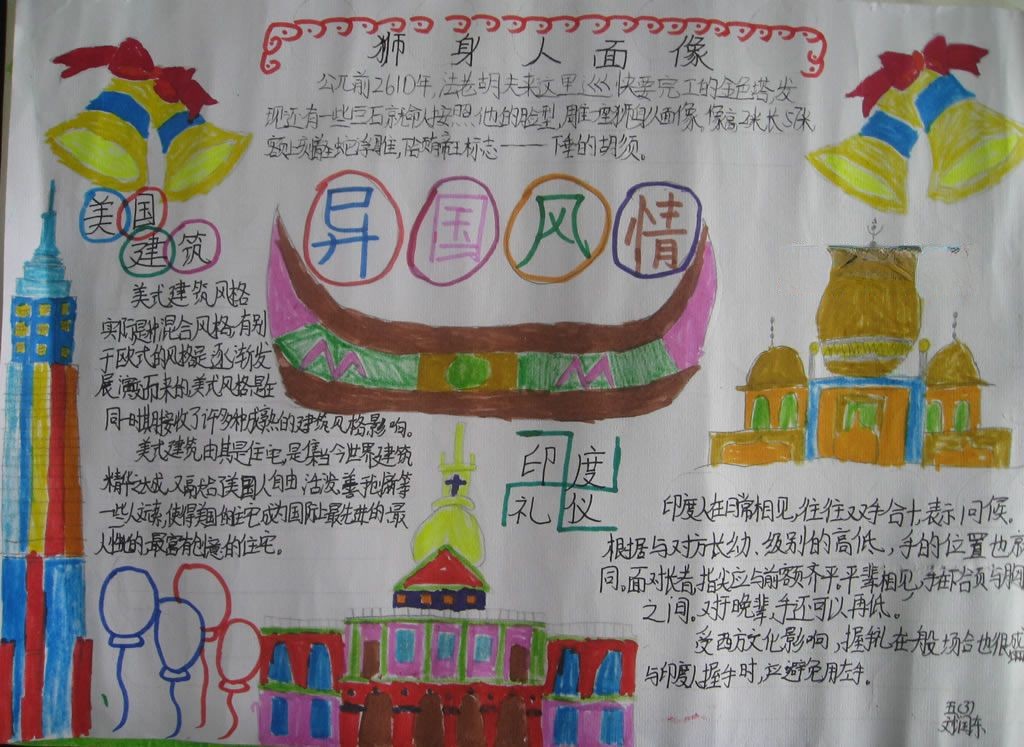 狮身人面像
公元前2610年,法老胡夫来这里巡 快要完工的金色塔,发
现还有一些巨石 令人按照他的脸型,雕 狮 面像,像高 米长5 米
额上 蛇 标志——下垂的胡须。
异国风情
美国
建筑
美式建筑风格
实际是种混合风格,有别
于欧式的风格是逐渐发
展演变而来的美式风格是在
同一时期接收了许多种成熟的建筑风格影响。
美式建筑由其是住宅,是集当今世界建筑
精华大成,又融合了美国人自由、活发、善于创新等
一些人文元素,使得美国的住宅成为国际上最先进的、最
人性的、最富有创意的住宅。
印度
礼仪
印度人在日常相见,往往双手合十,表示问候。
根据与对方长幼、级别的高低,手的位置也
同。面对长者,指尖应与前额齐平,平辈相见,手 与胸
之间。对于晚辈,手还可以再低。
受西方文化影响,握手礼在一般场合也很盛
与印度人握手时,应避免用左手。
五(3)